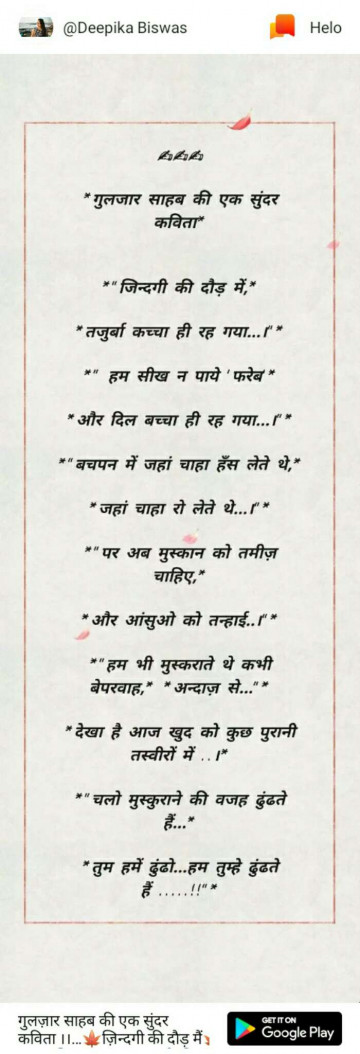 @Deepika Biswas
Helo
✍✍✍
*गुलजार साहब की एक सुंदर
कविता*
*"जिन्दगी की दौड़ में,*
*तजुर्बा कच्चा ही रह गया...।"*
*" हम सीख न पाये 'फरेब'*
*और दिल बच्चा ही रह गया...।"*
*"बचपन में जहां चाहा हँस लेते थे,*
*जहां चाहा रो लेते थे...।"*
*"पर अब मुस्कान को तमीज़
चाहिए,*
*और आंसुओ को तन्हाई..।"*
*"हम भी मुस्कराते थे कभी
बेपरवाह,* *अन्दाज़ से..."*
*देखा है आज खुद को कुछ पुरानी
तस्वीरों में ..।*
*"चलो मुस्कुराने की वजह ढुंढते
हैं...*
*तुम हमें ढुंढो...हम तुम्हे ढुंढते
हैं .....!!"*
गुलज़ार साहब की एक सुंदर
कविता ।।...🍁ज़िन्दगी की दौड़ में
GET IT ON
Google Play